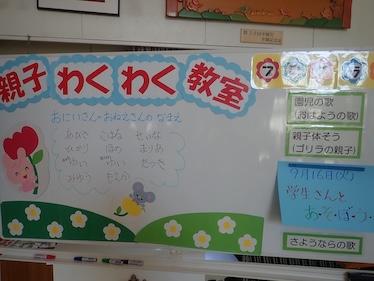 親子わくわく教室
おにいさん・おねえさんの なまえ
あずさ こはる せいな
ひかり ほの まりあ
ゆい ゆい たつき
みゆう もえか
園児の歌
(おはようの歌)
親子体そう
(ゴリラの親子)
9月16日(火)
学生さんと
あ・そ・ぼ・う・
さようならの歌